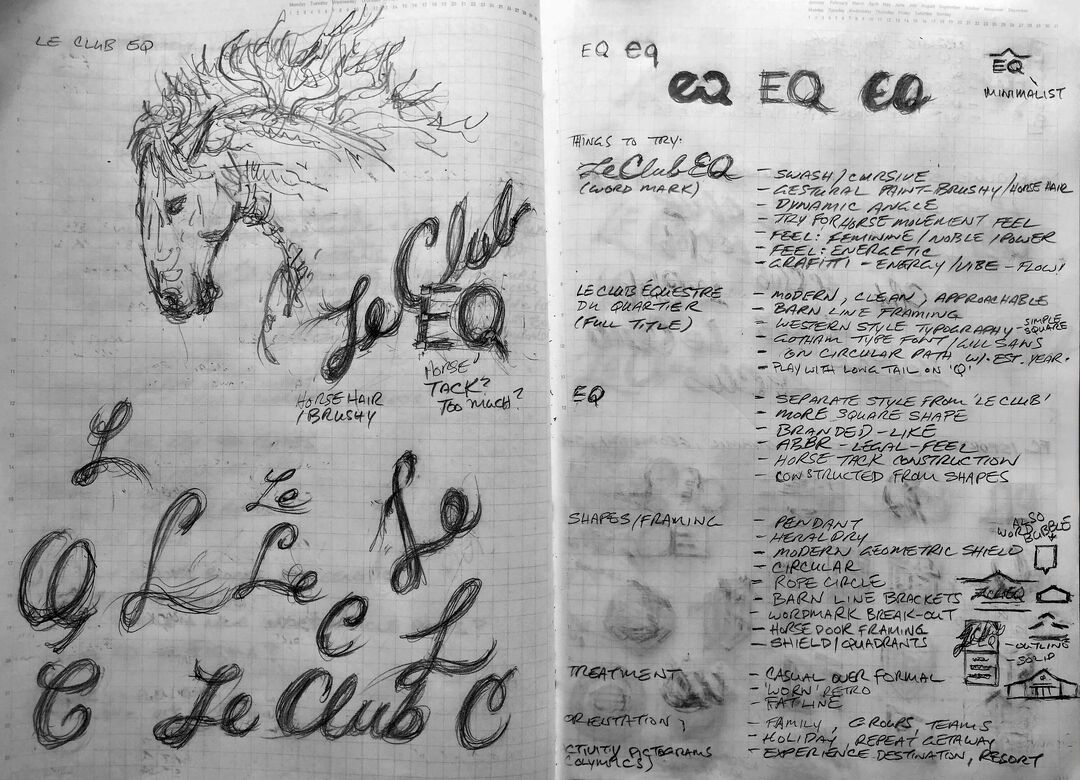 LE CLUB EQ
Le Club
EQ
HORSE HAIR
/BRUSHY
HORSE
TACK?
TOO MUCH?
L
Le
Le
L
Le
Q
C
L
C
Le Club
C
EQ eq
eq EQ EQ
EQ
MINIMALIST
THINGS TO TRY:
Le Club EQ
(WORD MARK)
- SWASH/CURSIVE
- GESTURAL PAINT-BRUSHY/HORSE HAIR
- DYNAMIC ANGLE
- TRY FOR HORSE MOVEMENT FEEL
- FEEL: FEMININE/NOBLE/POWER
- FEEL: ENERGETIC
- GRAFITTI - ENERGY/VIBE - FLOW!
LE CLUB ÉQUESTRE
DU QUARTIER
(FULL TITLE)
- MODERN, CLEAN, APPROACHABLE
- BARN LINE FRAMING
- WESTERN STYLE TYPOGRAPHY - SIMPLE SQUARE
- GOTHAM TYPE FONT/GILL SANS
- ON CIRCULAR PATH W/. EST. YEAR.
- PLAY WITH LONG TAIL ON 'Q'
EQ
- SEPARATE STYLE FROM 'LE CLUB'
- MORE SQUARE SHAPE
- BRANDED-LIKE
- ABBR - LEGAL-FEEL
- HORSE TACK CONSTRUCTION
- CONSTRUCTED FROM SHAPES
SHAPES/FRAMING
- PENDANT
- HERALDRY
- MODERN GEOMETRIC SHIELD
- CIRCULAR
- ROPE CIRCLE
- BARN LINE BRACKETS
- WORDMARK BREAK-OUT
- HORSE DOOR FRAMING
- SHIELD/QUADRANTS
ALSO
WORD BUBBLE
- OUTLINE
- SOLID
TREATMENT
- CASUAL OVER FORMAL
- 'WORN' RETRO
- FAT LINE
ORIENTATION
- FAMILY, GROUPS, TEAMS
- HOLIDAY, REPEAT GETAWAY
- EXPERIENCE DESTINATION, RESORT
CTIVITY PICTOGRAMS
OLYMPICS)